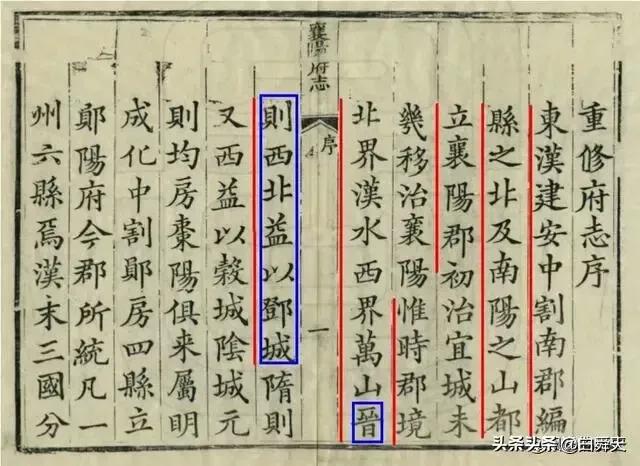 重修府志序
東漢建安中割南郡編
縣之北及南陽之山都
立襄陽郡初治宜城未
幾移治襄陽惟時郡境
北界漢水西界萬山晉
襄陽府志
序
一
則西北益以鄧城隋則
又西益以穀城陰城元
則均房棗陽俱来屬明
成化中割鄖房四縣立
鄖陽府今郡所統凡一
州六縣焉漢末三國分
头条头条@白舜天